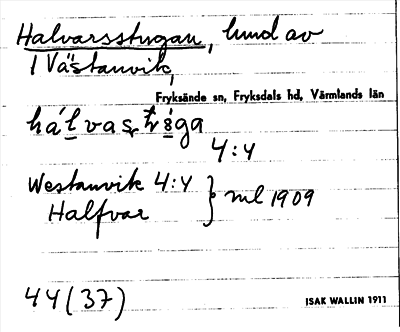 Halvarsstugan, hmd av
1 Västanvik,
Fryksände sn, Fryksdals hd, Värmlands län
4:4
Westanvik 4:4 } ml 1909
Halfvar
44(37)
ISAK WALLIN 1911